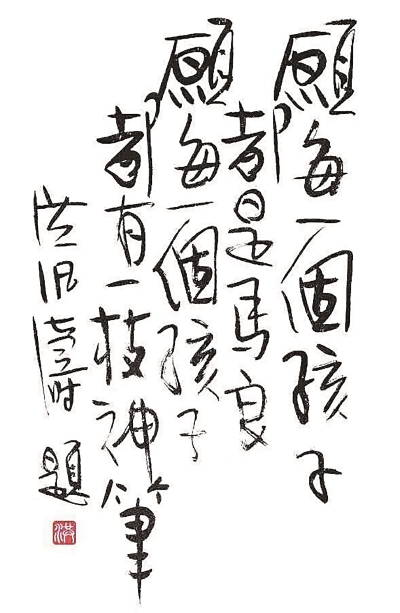 願每一個孩子
都是馬良
願每一個孩子
都有一枝神筆
洪汛濤 題
洪